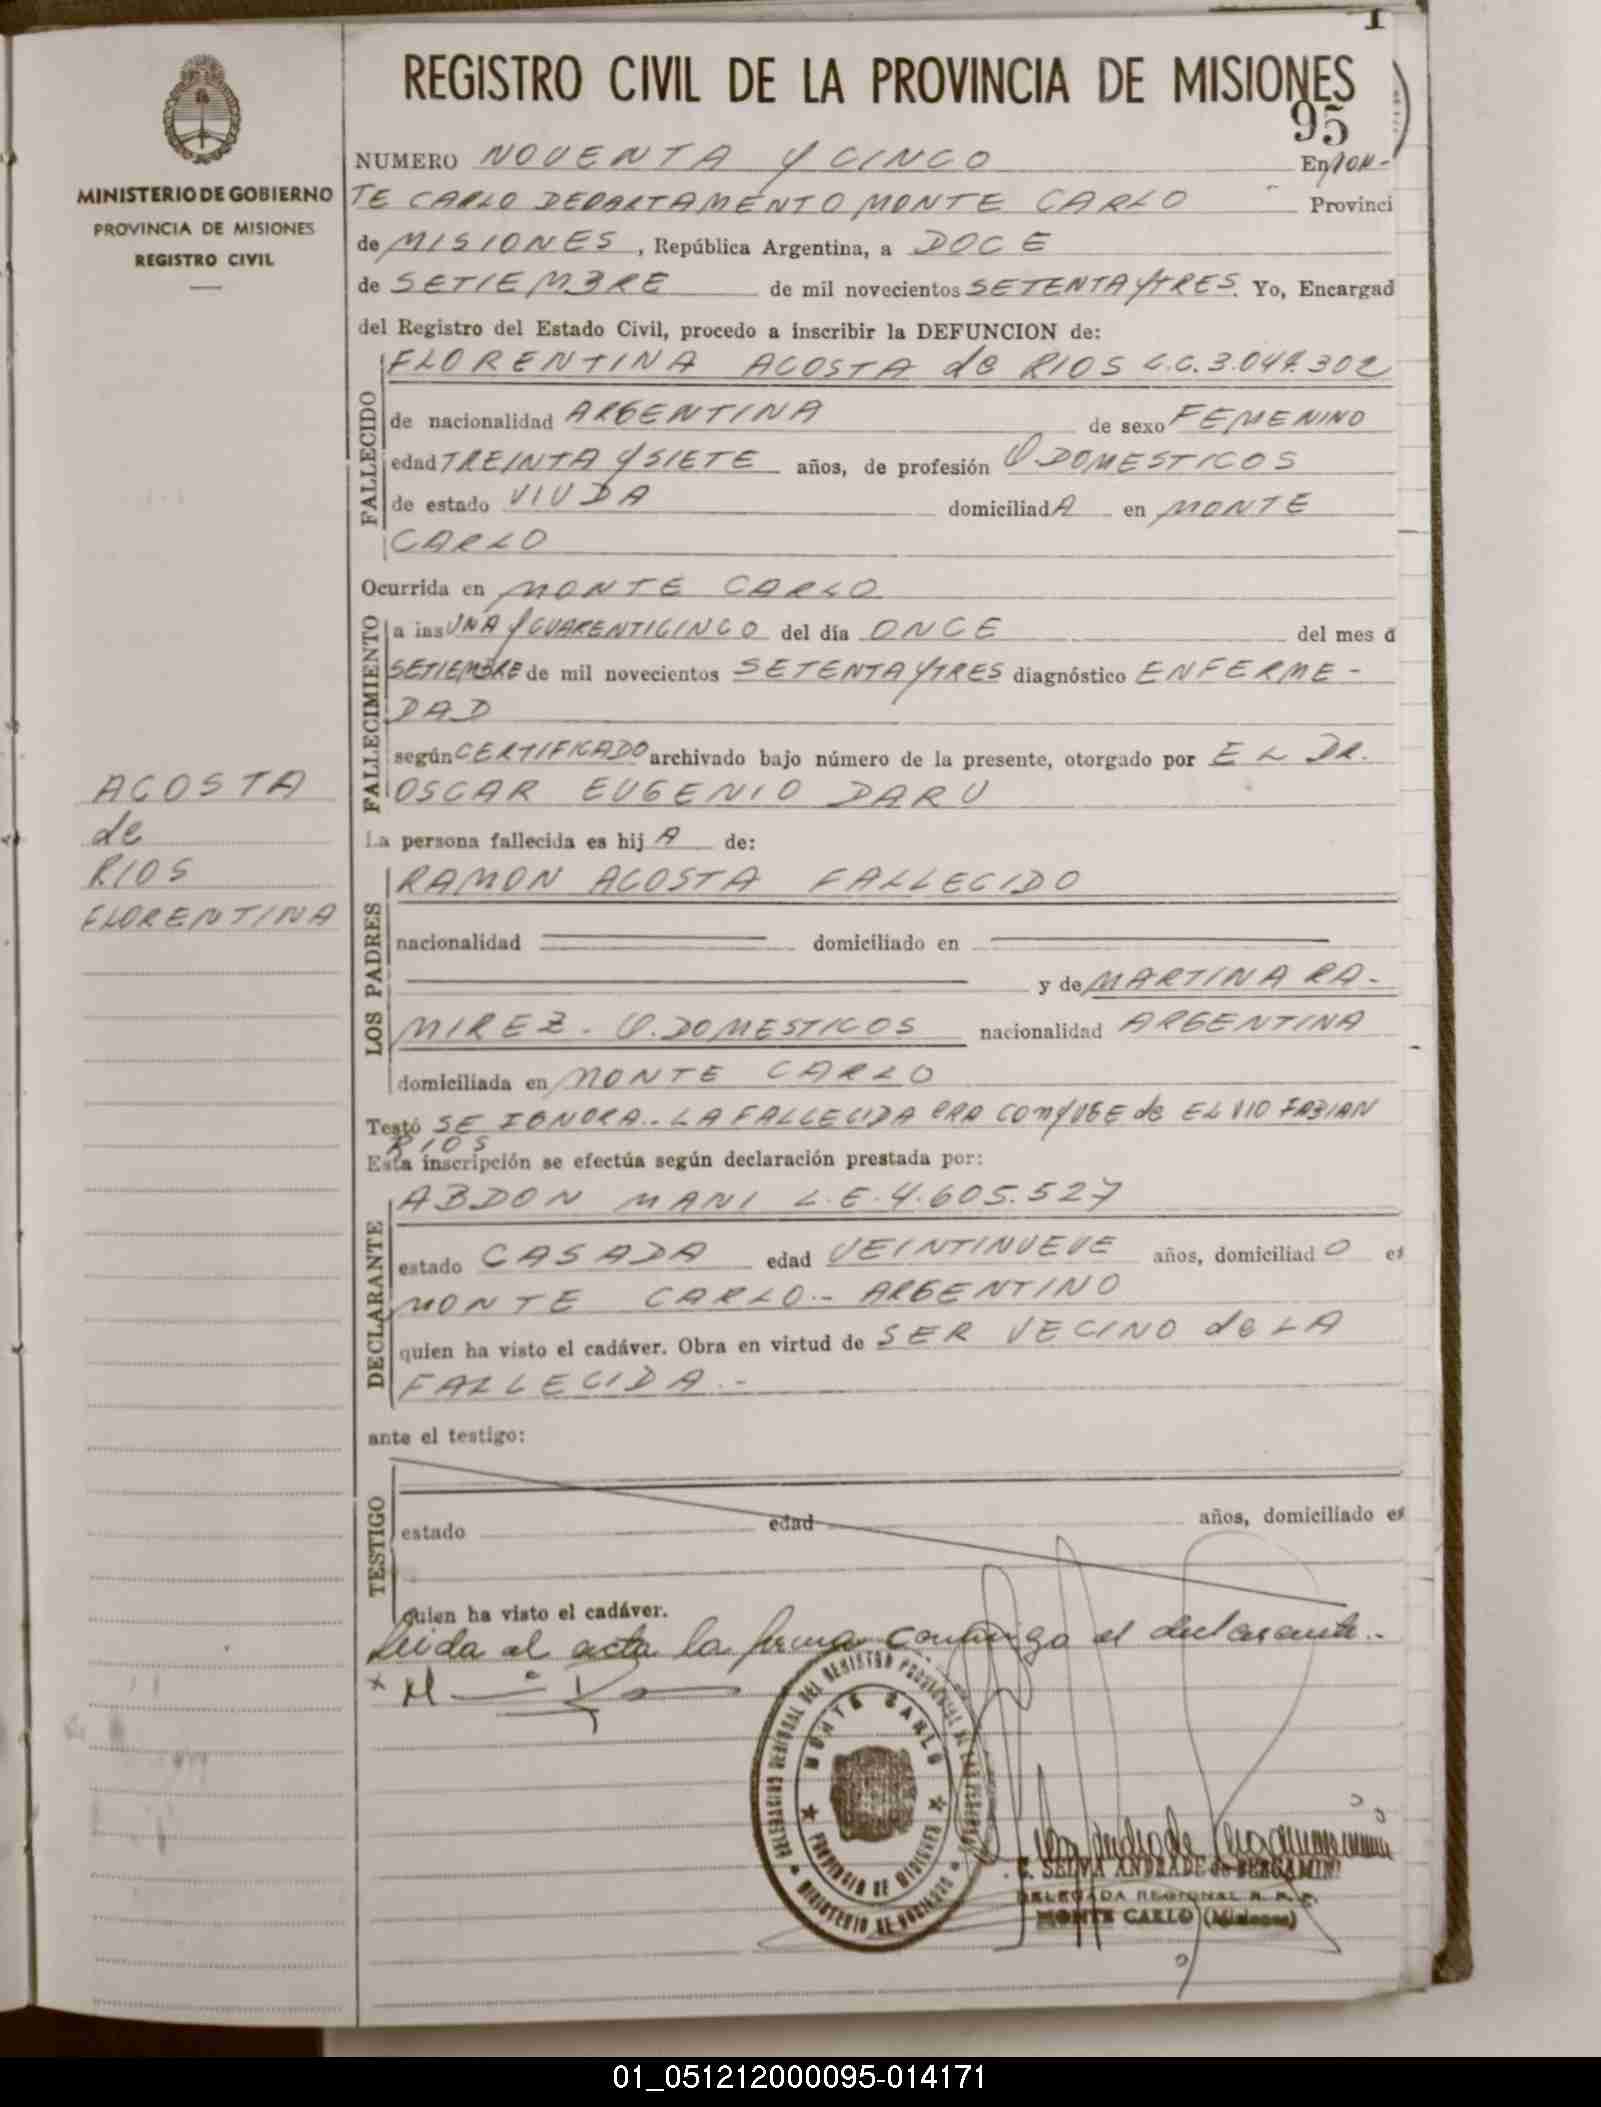 1
REGISTRO CIVIL DE LA PROVINCIA DE MISIONES
95
MINISTERIO DE GOBIERNO
PROVINCIA DE MISIONES
REGISTRO CIVIL
NUMERO NOVENTA Y CINCO En MON-
TE CARLO DEPARTAMENTO MONTE CARLO Provinci
de MISIONES, República Argentina, a DOCE
de SETIEMBRE de mil novecientos SETENTA Y TRES. Yo, Encargad
del Registro del Estado Civil, procedo a inscribir la DEFUNCION de:
FALLECIDO
FLORENTINA ACOSTA de RIOS L.C. 3.047.302
de nacionalidad ARGENTINA de sexo FEMENINO
edad TREINTA Y SIETE años, de profesión Q. DOMESTICOS
de estado VIUDA domiciliadA en MONTE
CARLO
Ocurrida en MONTE CARLO
FALLECIMIENTO
a las UNA Y CUARENTICINCO del día ONCE del mes d
SETIEMBRE de mil novecientos SETENTA Y TRES diagnóstico ENFERME-
DAD
según CERTIFICADO archivado bajo número de la presente, otorgado por EL DR.
OSCAR EUGENIO DARU
ACOSTA
de
RIOS
FLORENTINA
La persona fallecida es hijA de:
LOS PADRES
RAMON ACOSTA FALLECIDO
nacionalidad domiciliado en
y de MARTINA RA-
MIREZ. Q. DOMESTICOS nacionalidad ARGENTINA
domiciliada en MONTE CARLO
Testó SE IGNORA.- LA FALLECIDA ERA CONYUGE de ELVIO FABIAN
RIOS
Esta inscripción se efectúa según declaración prestada por:
DECLARANTE
ABDON MANI L.E. 4.605.527
estado CASADA edad VEINTINUEVE años, domiciliadO e
MONTE CARLO.- ARGENTINO
quien ha visto el cadáver. Obra en virtud de SER VECINO de LA
FALLECIDA.-
ante el testigo:
TESTIGO
estado edad años, domiciliado e
quien ha visto el cadáver.
Leida el acta la firma conmigo el declarante.-
DELEGACION REGIONAL DEL REGISTRO PROVINCIAL DE LAS PERSONAS
MONTE CARLO
PROVINCIA DE MISIONES
MINISTERIO DE GOBIERNO
E. SELVA ANDRADE de BERGAMINI
DELEGADA REGIONAL R. P. P.
MONTE CARLO (Misiones)
01_051212000095-014171